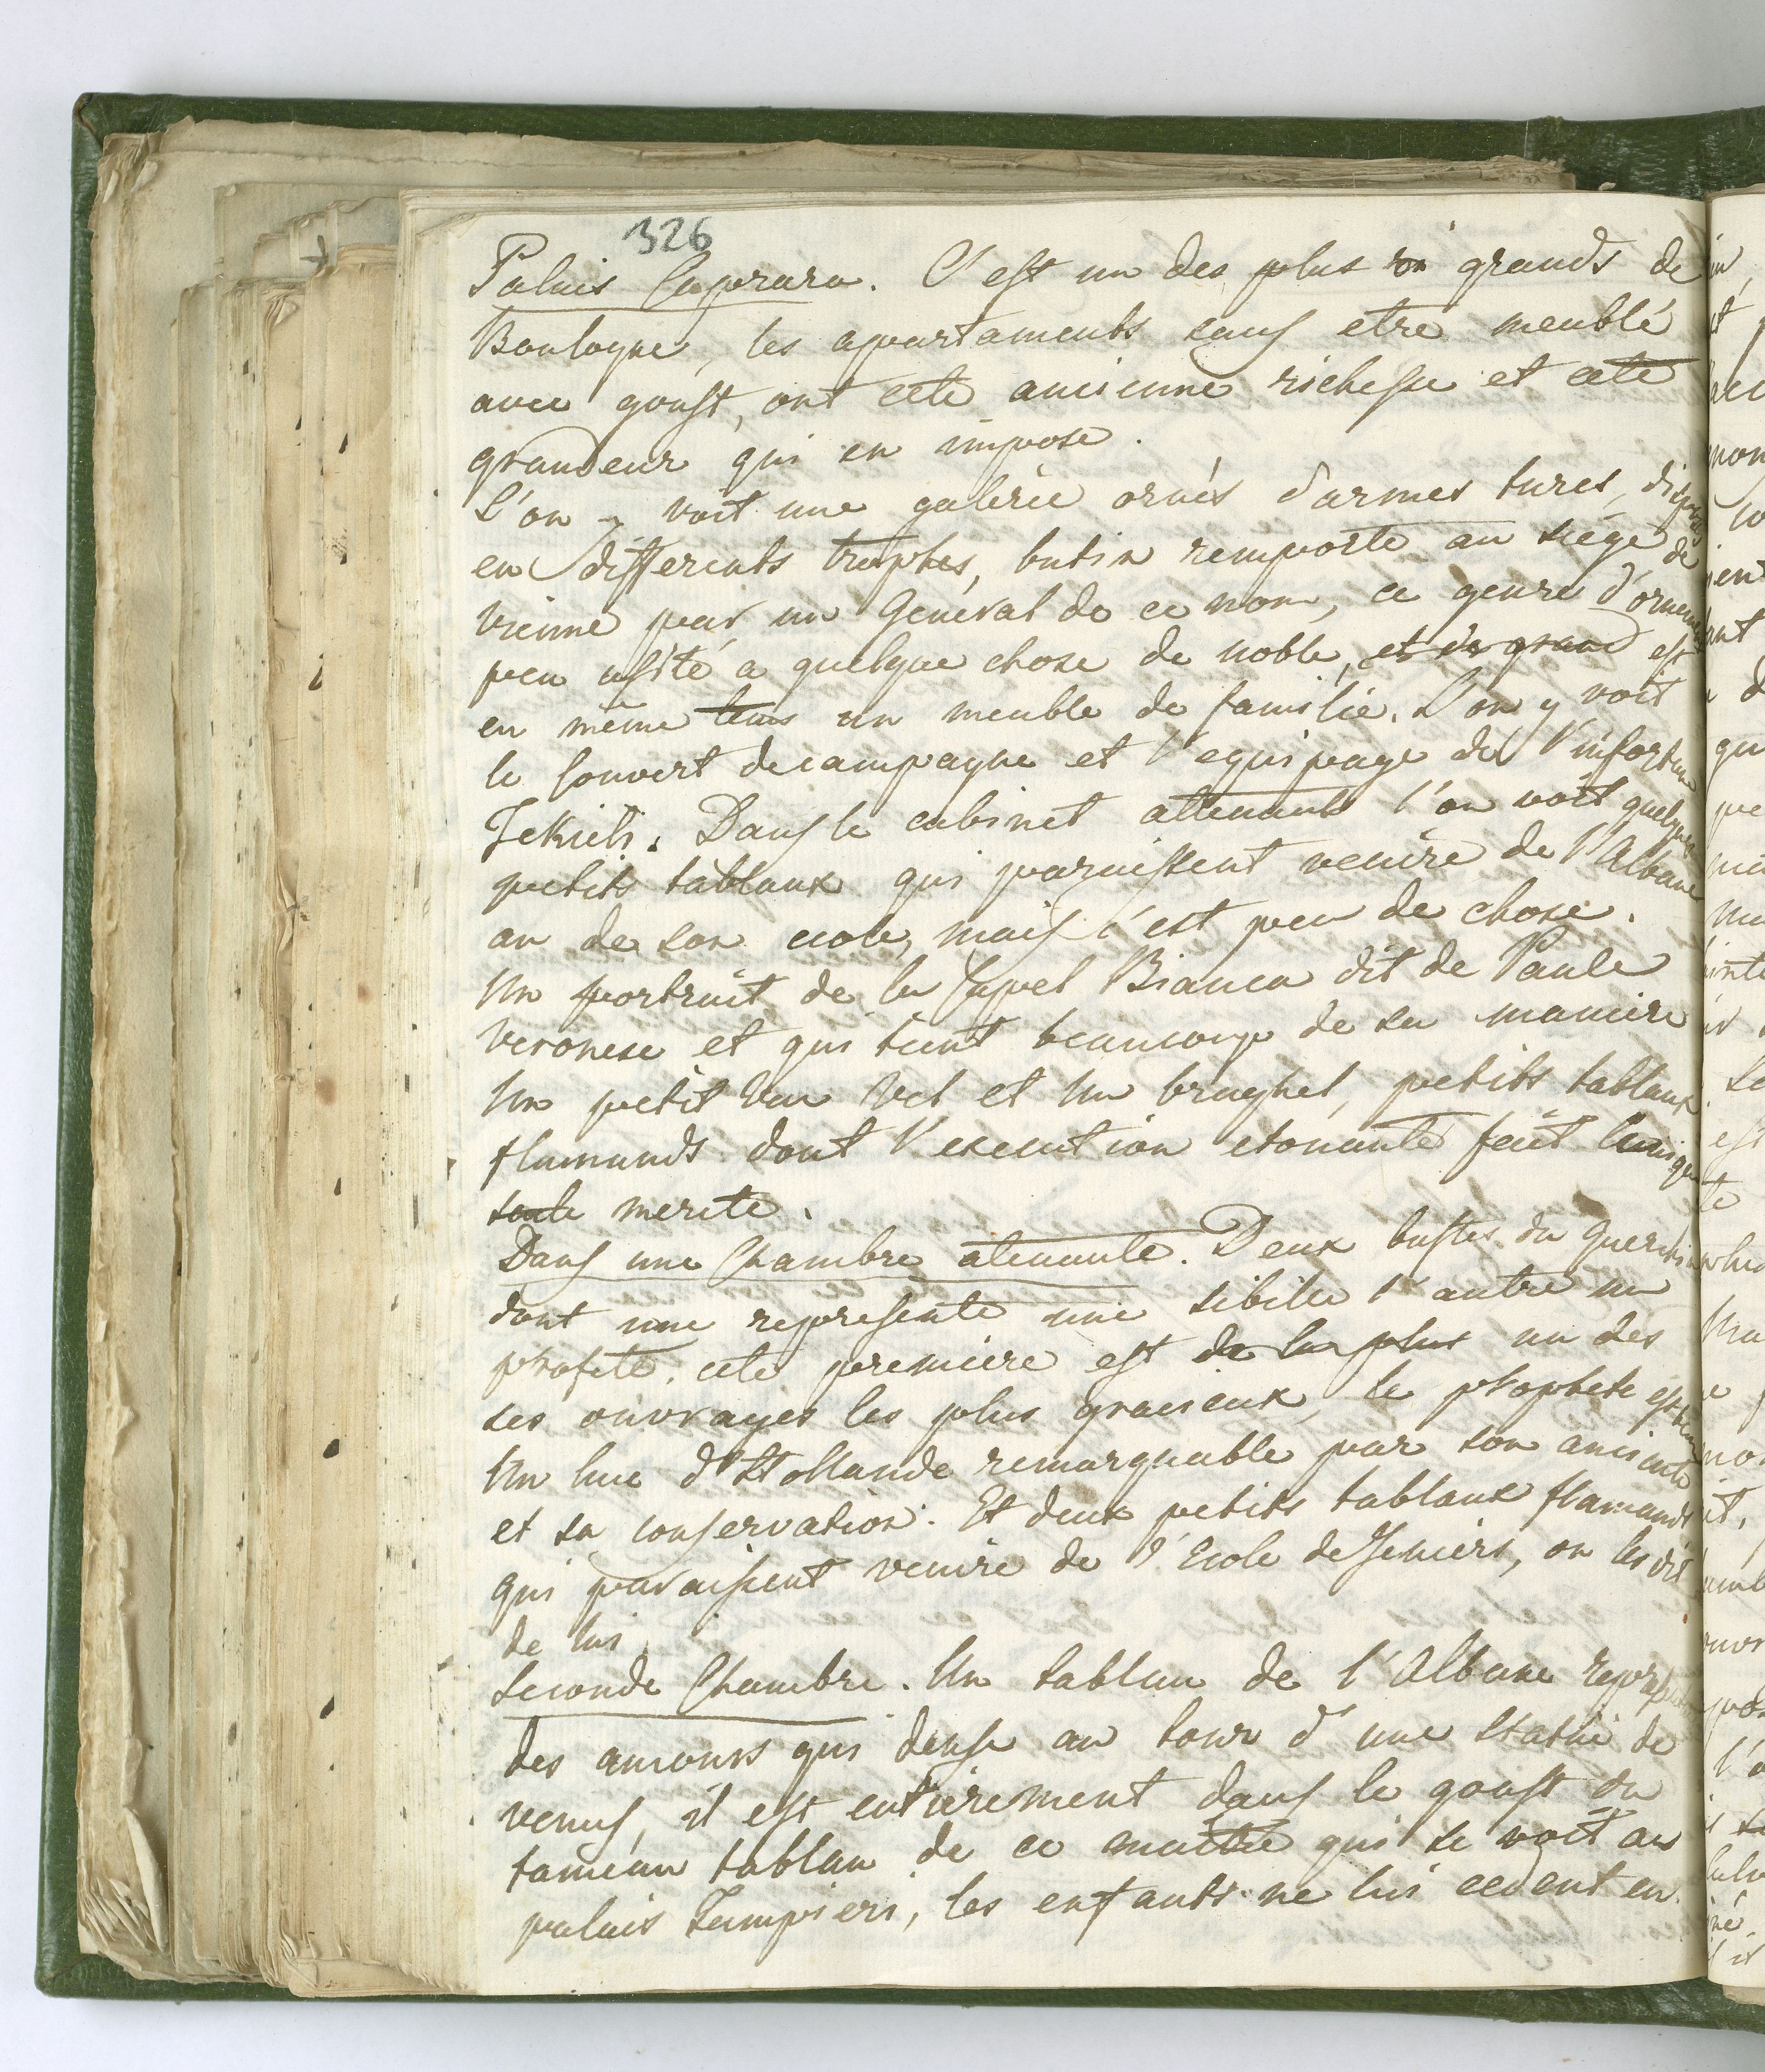 326
Palais Caprara. C'est un des plus ri grands de
Boulogne, les apartaments sans etre meublé
avec goust, ont cete ancienne richesse et cete
grandeur qui en impose.
L'on y voit une galerie ornés d'armes turcs, disposés
en differents trophés, butin remporté au siege de
vienne par un General de ce nom, ce genre d'ornement
peu usité a quelque chose de noble, et de grand est
en même tems un meuble de familie. L'on y voit
le Couvert de campagne et l'equipage de l'infortuné
Tekieli. Dans le cabinet attenant l'on voit quelques
petits tablaux qui paraissent venire de l'Albane
au de son ecole, mais c'est peu de chose.
Un portrait de la Capel Bianca dit de Paule
Veronese et qui tient beaucoup de sa maniere
Un petit Van Vel et Un brughel, petits tablaux
flamands dont l'execution etonante fait l'unique
seule merite.
Dans une Chambre atenante. Deux bustes du Querchin
dont une represente une sibille l'autre un
profete. cete premiere est de la plus un des
ses ouvrages les plus gracieux, le prophete est
Un luc d'Hollande remarquable par son ancienté
et sa conservation. Et deux petits tablaux flamands
qui paraissent venire de l'Ecole de Teniers, on les dit
de lui.
Seconde Chambre. Un tablau de l'Albane represente
des amours qui danse au tour d'une statue de
venus, il est entierement dans le goust du
fameau tablau de ce maitre qui se voit au
palais Sampieri, les enfants ne lui cedent en